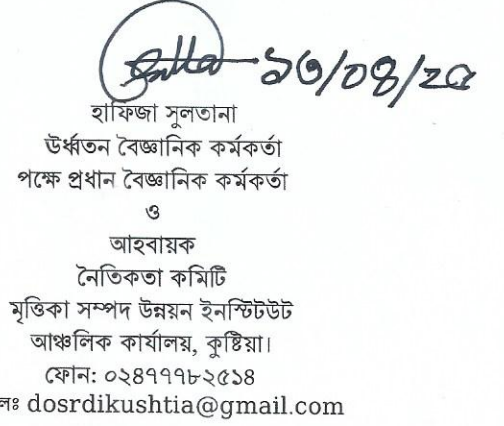 ১৩/০৪/২৫
হাফিজা সুলতানা
উর্ধ্বতন বৈজ্ঞানিক কর্মকর্তা
পক্ষে প্রধান বৈজ্ঞানিক কর্মকর্তা
ও
আহবায়ক
নৈতিকতা কমিটি
মৃত্তিকা সম্পদ উন্নয়ন ইনস্টিটিউট
আঞ্চলিক কার্যালয়, কুষ্টিয়া।
ফোন: ০২৪৭৭৭৮২৫১৪
লঃ dosrdikushtia@gmail.com